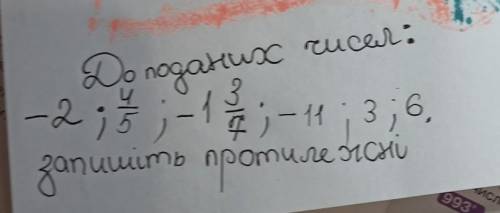 До поданих чисел:
-2 ; 4/5 ; -1 3/7 ; -11 ; 3 ; 6.
запишіть протилежні
993